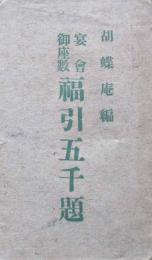 胡蝶庵編
宴會
御座敷
福引五千題